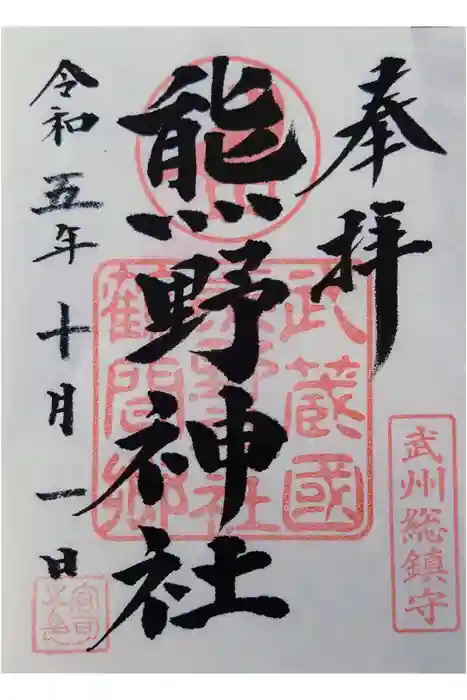 奉拝
武州総鎮守
熊野神社
武蔵國
熊野神社
鶴間郷
令和五年十月一日
宮司